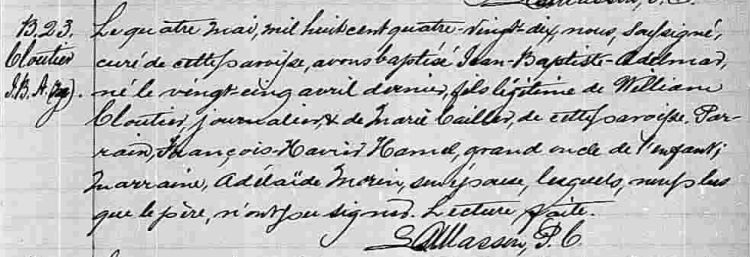 B.23.
Cloutier
J.B.A.
Le quatre mai, mil huit cent quatre-vingt-dix, nous, soussigné,
curé de cette paroisse, avons baptisé Jean-Baptiste-Adelmar,
né le vingt cinq avril dernier, fils légitime de William
Cloutier, journalier, & de Marie Cailler, de cette paroisse. Par-
rain, François-Xavier Hamel, grand oncle de l'enfant;
marraine, Adélaïde Morin, son épouse, lesquels, non plus
que le père, n'ont pu signer. Lecture faite.
Masson, P. C